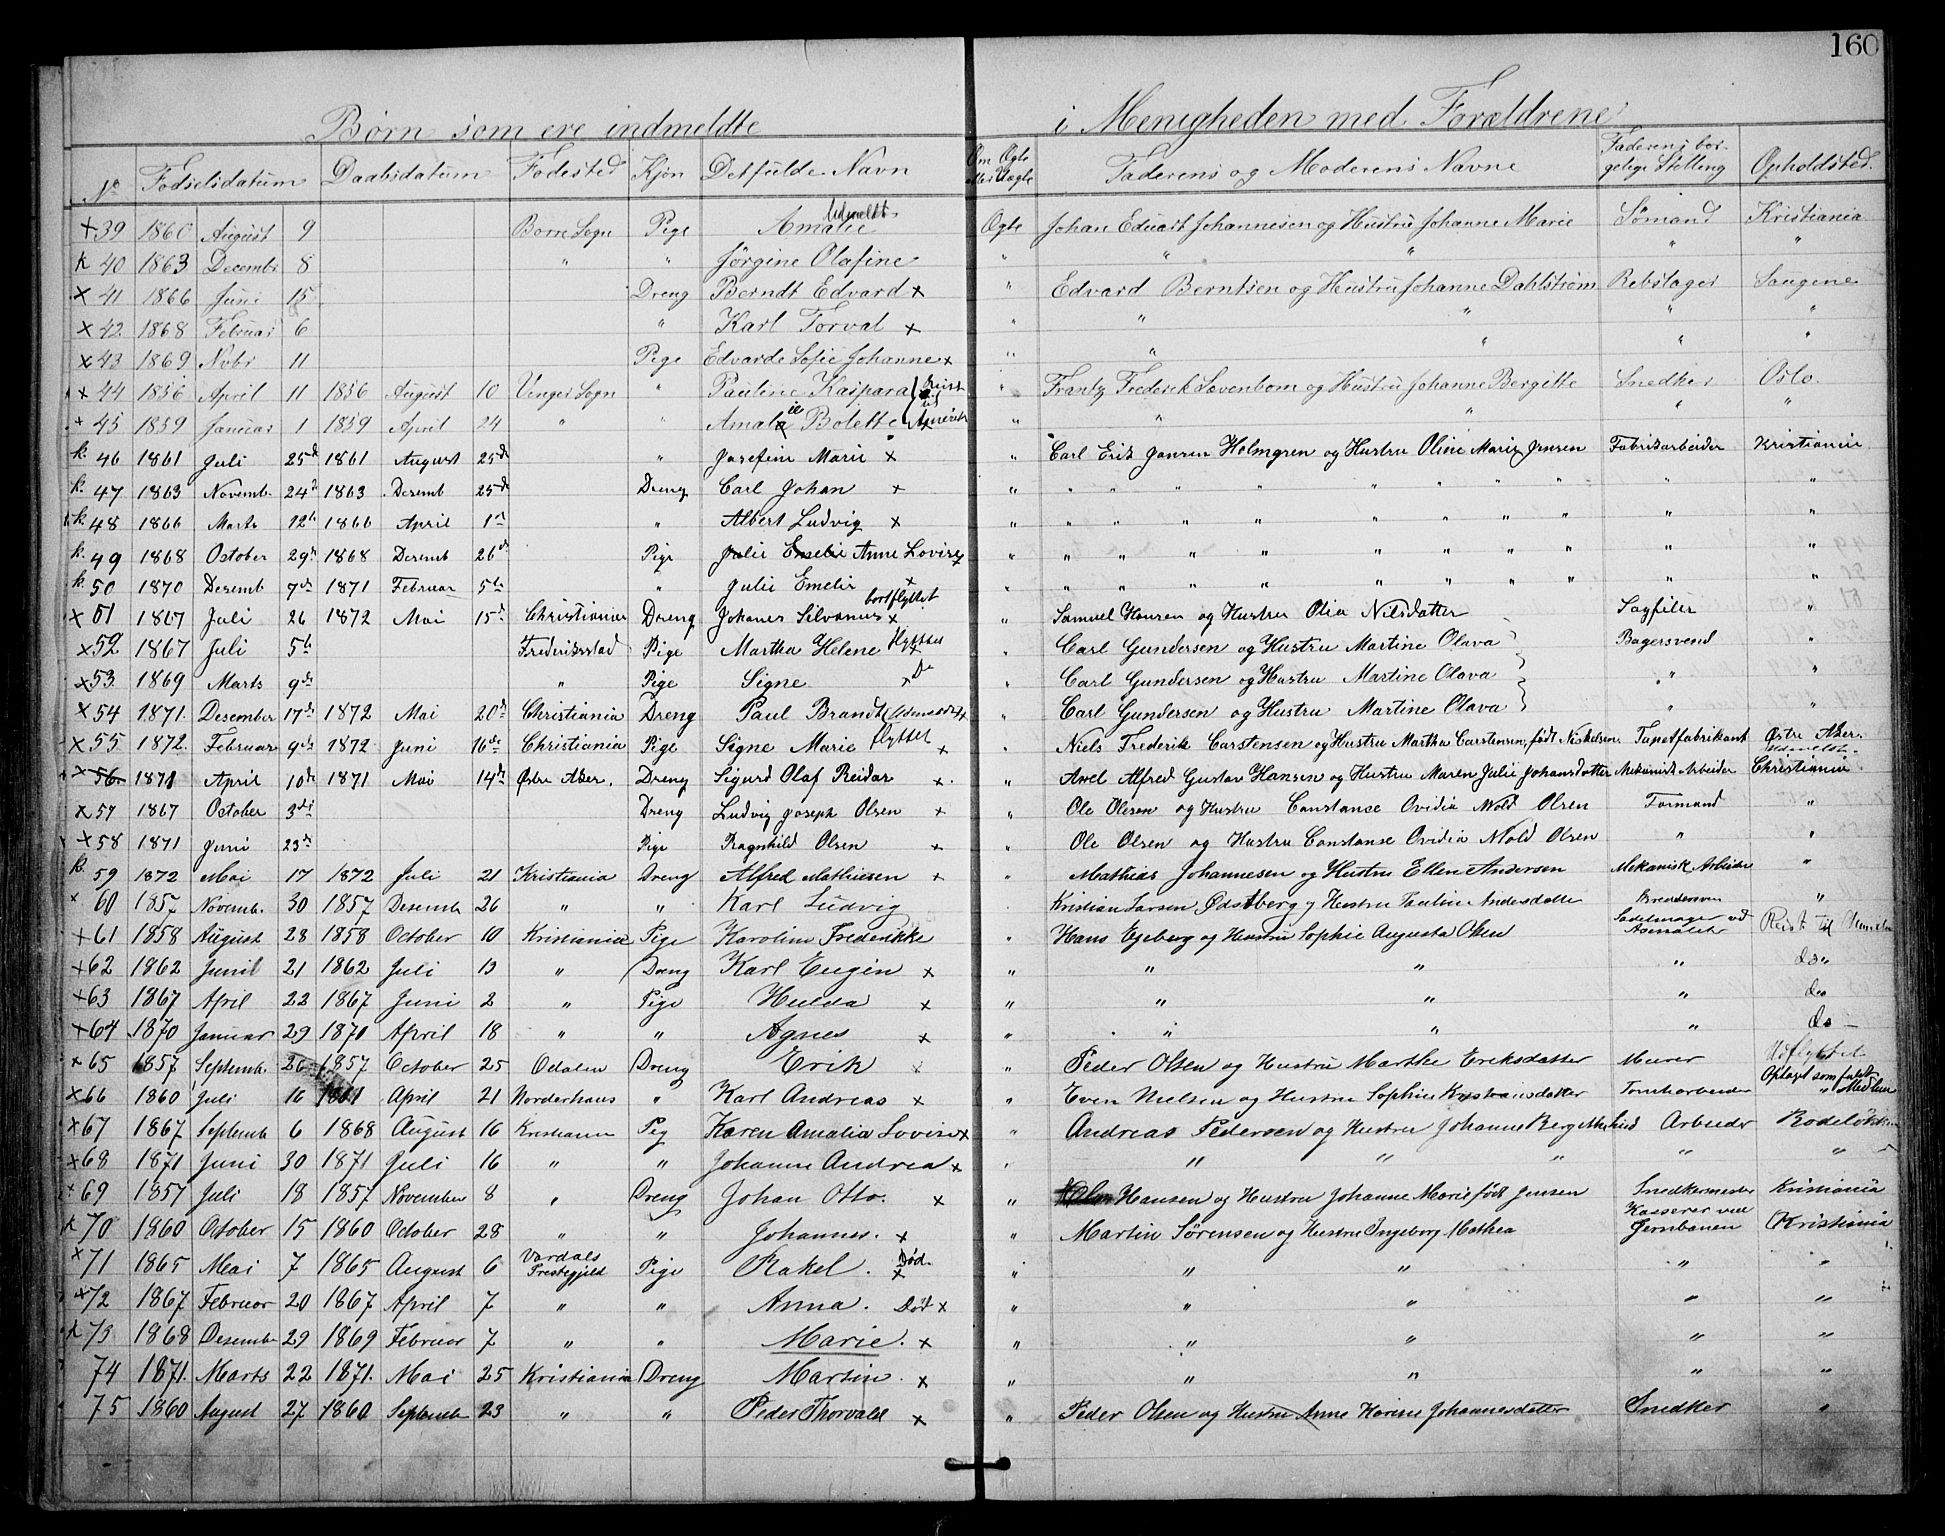 160
Børn som ere indmeldte i Menigheden med Forældrene
No Fødselsdatum Daabsdatum Fødested Kjøn Det fulde Navn Om Ægte eller Uægte Faderens og Moderens Navne Faderens borgelige Stilling Opholdsted.
Udmeldt
x 39 1860 August 9 Borre Sogn Pige Amalie Ægte Johan Eduart Johannesen og Hustru Johanne Marie Sømand Kristiania
k 40 1863 Decembr 8 " " Jørgine Olafine " " " " "
x 41 1866 Juni 15 Dreng Berndt Edvard x " Edvard Berntsen og Hustru Johanne Dahlstrøm Rebslager Saugene
x 42 1868 Februar 6 " Karl Torval x " " " " "
x 43 1869 Nvbr 11 Pige Edvarde Sofie Johanne x " " " " "
x 44 1856 April 11 1856 August 10 Vinger Sogn " Pauline Kaspara Reist til " Frantz Frederik Løvenbom og Hustru Johanne Bergitte Snedker Oslo.
x 45 1859 Januar 1 1859 April 24 " " Amalie Bolette Amerika " " " " "
k. 46 1861 Juli 25d 1861 August 25d " Josefine Marie x " Carl Erik Jansen Holmgren og Hustru Oline Marie Jensen Fabrikarbeider Kristiania
k. 47 1863 Novemb. 24d 1863 Desemb 25d Dreng Carl Johan x " " " " " " " " " " "
k. 48 1866 Marts 12te 1866 April 1st " Albert Ludvig x " " " " " " " " " " "
k. 49 1868 October 29de 1868 Desemb 26de Pige Julie Emelie Anne Lovise x " " " " " " " " " "
k. 50 1870 Desemb 7de 1871 Februar 5te " Julie Emelie x " " " " " " " " " "
bortflyttet
x 51 1867 Juli 26 1872 Mai 15d Christiania Dreng Johanes Silvanus x " Samuel Hansen og Hustru Olia Nilsdatter Sagfiler "
x 52 1867 Juli 5te Frederiksstad Pige Martha Helene flyttet " Carl Gundersen og Hustru Martine Olava Bagersvend "
x 53. 1869 Marts 9de " Pige Signe x Do " Carl Gundersen og Hustru Martine Olava " " "
x 54 1871. Desember 17de 1872 Mai 20de Christiania Dreng Paul Brandt Udmeldt x " Carl Gundersen og Hustru Martine Olava " "
x 55 1872. Februar 9de 1872 Juni 16de Christiania Pige Signe Marie flyttet x " Niels Frederik Carstensen og Hustru Martha Carstensen, født Niskelsen Tapetfabrikant Østre Aker.
Udmeldt
x 56. 1871 April 10de 1871 Mai 14de Østre Aker. Dreng Sigurd Olaf Reidar x. " Axel Alfred Gustav Hansen og Hustru Maren Julie Johansdatter Mekanisk Arbeider Christiania
x 57 1867 October 3di Dreng Ludvig Joseph Olsen x " Ole Olesen og Hustru Constanse Ovidia Mold Olsen Formand "
x 58 1871 Juni 23de Pige Ragnhild Olsen x " Ole Olsen og Hustru Constanse Ovidia Mold Olsen " "
k. 59 1872 Mai 17 1872 Juli 21 Kristiania Dreng Alfred Mathiesen x " Mathias Johannesen og Hustru Ellen Andersen Mekanisk Arbeider "
x 60 1857 Novemb. 30 1857 Desemb 26 " " Karl Ludvig Kristian Larsen Ødstberg og Hustru Pauline Andersdatter "
x 61 1858 August 28 1858 October 10 Kristiania Pige Karoline Frederikke " Hans Egeberg og Hustru Sophie Augusta Olsen Sadelmager ved Reist til
x 62 1862 Junil 21 1862 Juli 13 " Dreng Karl Eugin x " " " " do"
x 63 1867 April 22 1867 Juni 2 " Pige Hulda x " " " " do
x 64 1870 Januar 29 1870 April 18 " " Agnes x " " " " do
x 65 1857 Septemb. 26 1857 October 25 Odalen Dreng Erik x " Peder Olsen og Hustru Marthe Eriksdatter Murer Udflyttet
x 66 1860 Juli 16 1861 April 21 Norderhaus " Karl Andreas x " Even Nielsen og Hustru Sophie Kristiansdatter Tomtearbeider Optaget som fuldt Medlem
x 67 1867 Septemb 6 1868 August 16 Kristiania Pig Karen Amalia Lovise x " Andreas Pedersen og Hustru Johanne Bergithe Arbeider Rodeløkken
x 68 1871 Juni 30 1871 Juli 16 " " Johanne Andrea x " " " " " "
x 69 1857 Juli 18 1857 November 8 " Dreng Johan Otto. x " Hansen og Hustru Johanne Marie født Jensen Snedkermester Kristiania
k 70 1860 October 15 1860 October 28 " " Johannes. x " Martin Sørensen og Hustru Ingeborg Mathea Kasserer ved Jernbanen Kristiania
x 71 1865 Mai 7 1865 August 6 Vardals Prestegjeld Pige Rakel. Død. x " " " " "
x 72 1867 Februar 20 1867 April 7 " " Anna. Død x " " " " "
k 73 1868 Desemb 29 1869 Februar 7 " " Marie. x " " " " "
74 1871. Marts 22 1871. Mai 25 Kristiania Dreng Martin. x " " " " "
75 1860 August 27 1860 Septemb 23 " " Peder Thorvald x " Peder Olsen og Hustru Anne Karine Johannesdatter Snedker "